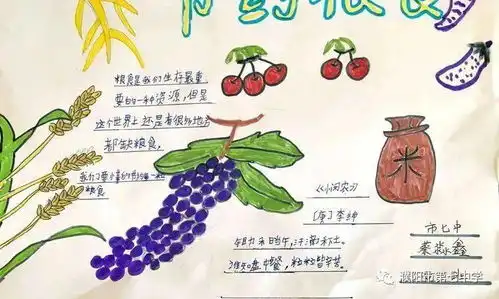 节约粮食
粮食是我们生存最重
要的一种资源，但是
这个世界上还是有很多地方
都缺粮食，
粮食
《悯农》
[唐]李绅
锄禾日当午，汗滴禾下土。
谁知盘中餐，粒粒皆辛苦。
米
市七中
蔡淼鑫
濮阳市第七中学